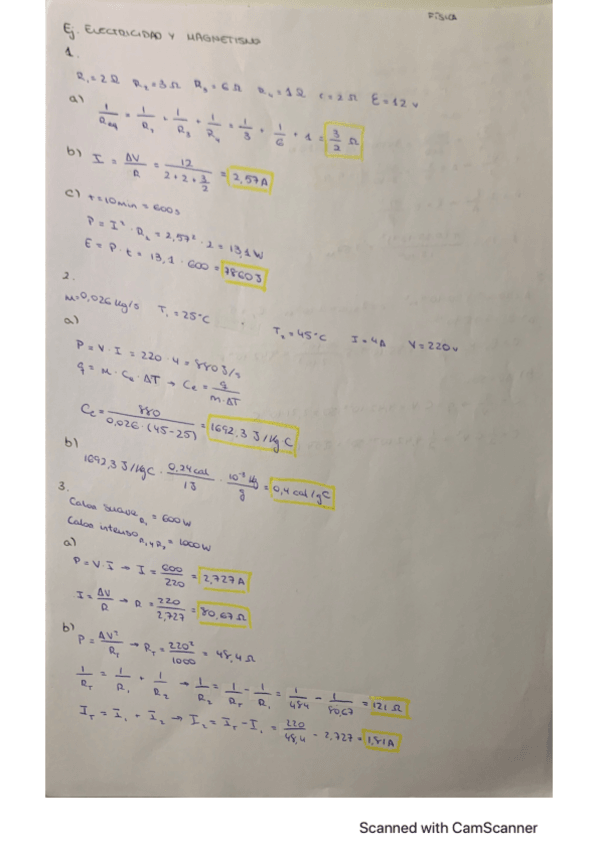 FÍSICA
Ej. ELECTRICIDAD Y MAGNETISMO
1.
R₁=2Ω R₂=3Ω R₃=6Ω R₄=1Ω r=2Ω E=12v
a) 1/Req = 1/R₂ + 1/R₃ + 1/R₄ = 1/3 + 1/6 + 1 = 3/2 Ω
b) I = ΔV/R = 12/(2+2+3/2) = 2,57A
c) t=10min = 600s
P = I² · R₁ = 2,57² · 2 = 13,1W
E = P · t = 13,1 · 600 = 7860J
2.
m=0,026 kg/s T₁=25°C T₂=45°C I=4A V=220v
a)
P = V · I = 220 · 4 = 880 J/s
q = m · Ce · ΔT → Ce = q/(m·ΔT)
Ce = 880/(0,026·(45-25)) = 1692,3 J/kgC
b)
1692,3 J/kgC · 0,24cal/1J · 10⁻³kg/g = 0,4 cal/gC
3.
Calor suave R₁ = 600W
Calor intenso R₁ y R₂ = 1000W
a)
P = V·I → I = 600/220 = 2,727A
I = ΔV/R → R = 220/2,727 = 80,67Ω
b)
P = ΔV²/R_T → R_T = 220²/1000 = 48,4Ω
1/R_T = 1/R₁ + 1/R₂ → 1/R₂ = 1/R_T - 1/R₁ = 1/48,4 - 1/80,67 = 121Ω
I_T = I₁ + I₂ → I₂ = I_T - I₁ = 220/48,4 - 2,727 = 1,81A
Scanned with CamScanner